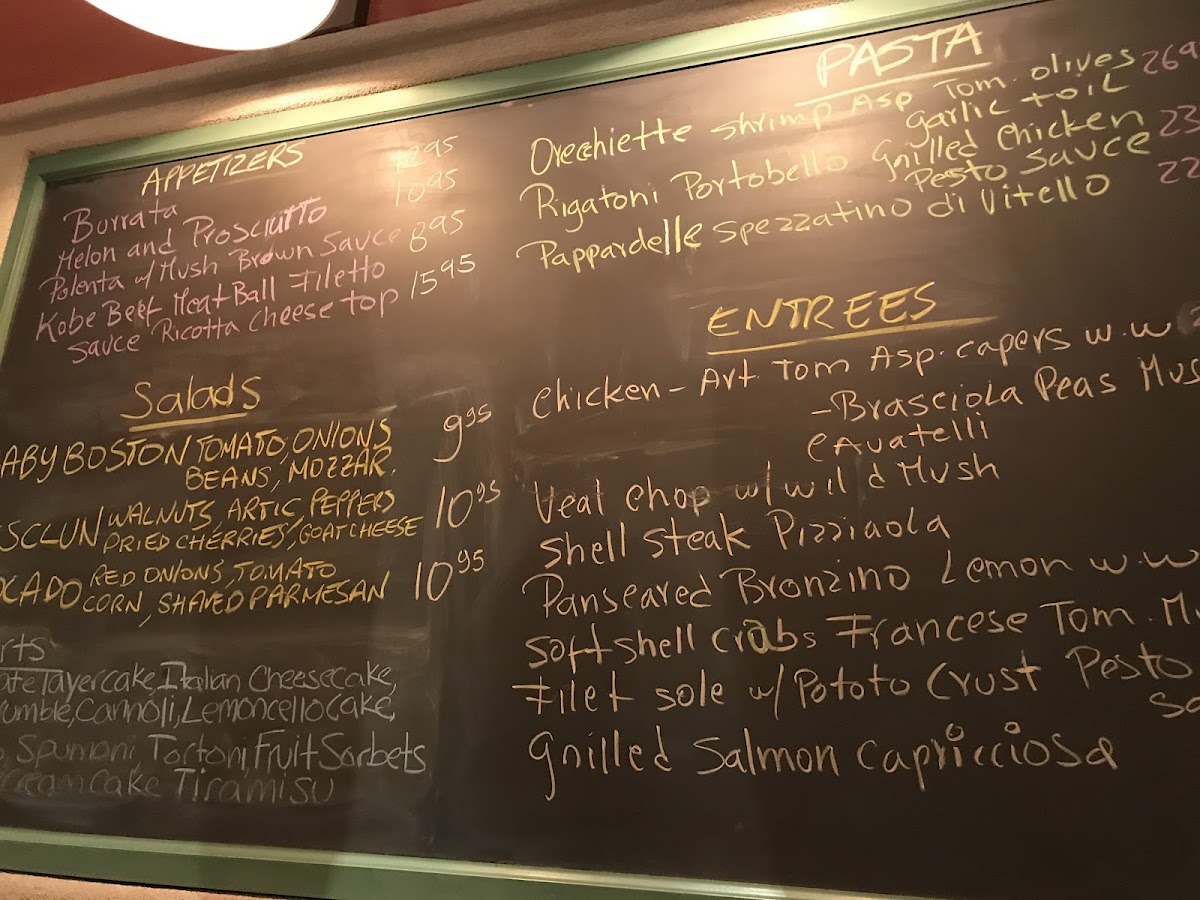 APPETIZERS
Burrata 1295
Melon and Prosciutto 1095
Polenta w/ Mush Brown Sauce 895
Kobe Beef Meat Ball Filetto
Sauce Ricotta cheese top 1595
Salads
ABY BOSTON TOMATO, ONIONS 995
BEANS, MOZZAR.
SCLUN WALNUTS, ARTIC, PEPPERS 1095
DRIED CHERRIES, GOAT CHEESE
OCADO RED ONIONS, TOMATO 1095
CORN, SHAVED PARMESAN
rts
ate Layercake, Italian Cheesecake,
rumble, Cannoli, Lemoncello Cake,
Spumoni, Tortoni, Fruit Sorbets
cream cake Tiramisu
PASTA
Orecchiette shrimp Asp Tom. olives 269
garlic + oil
Rigatoni Portobello Grilled Chicken 23
Pesto Sauce
Pappardelle spezzatino di Vitello 22
ENTREES
Chicken - Art Tom Asp. capers w.w
- Brasciola Peas Mus
cavatelli
Veal chop w/ wild Mush
Shell Steak Pizziaola
Panseared Bronzino Lemon w.w
Softshell crabs Francese Tom. M
Filet sole w/ Pototo Crust Pesto
Sa
grilled Salmon capricciosa